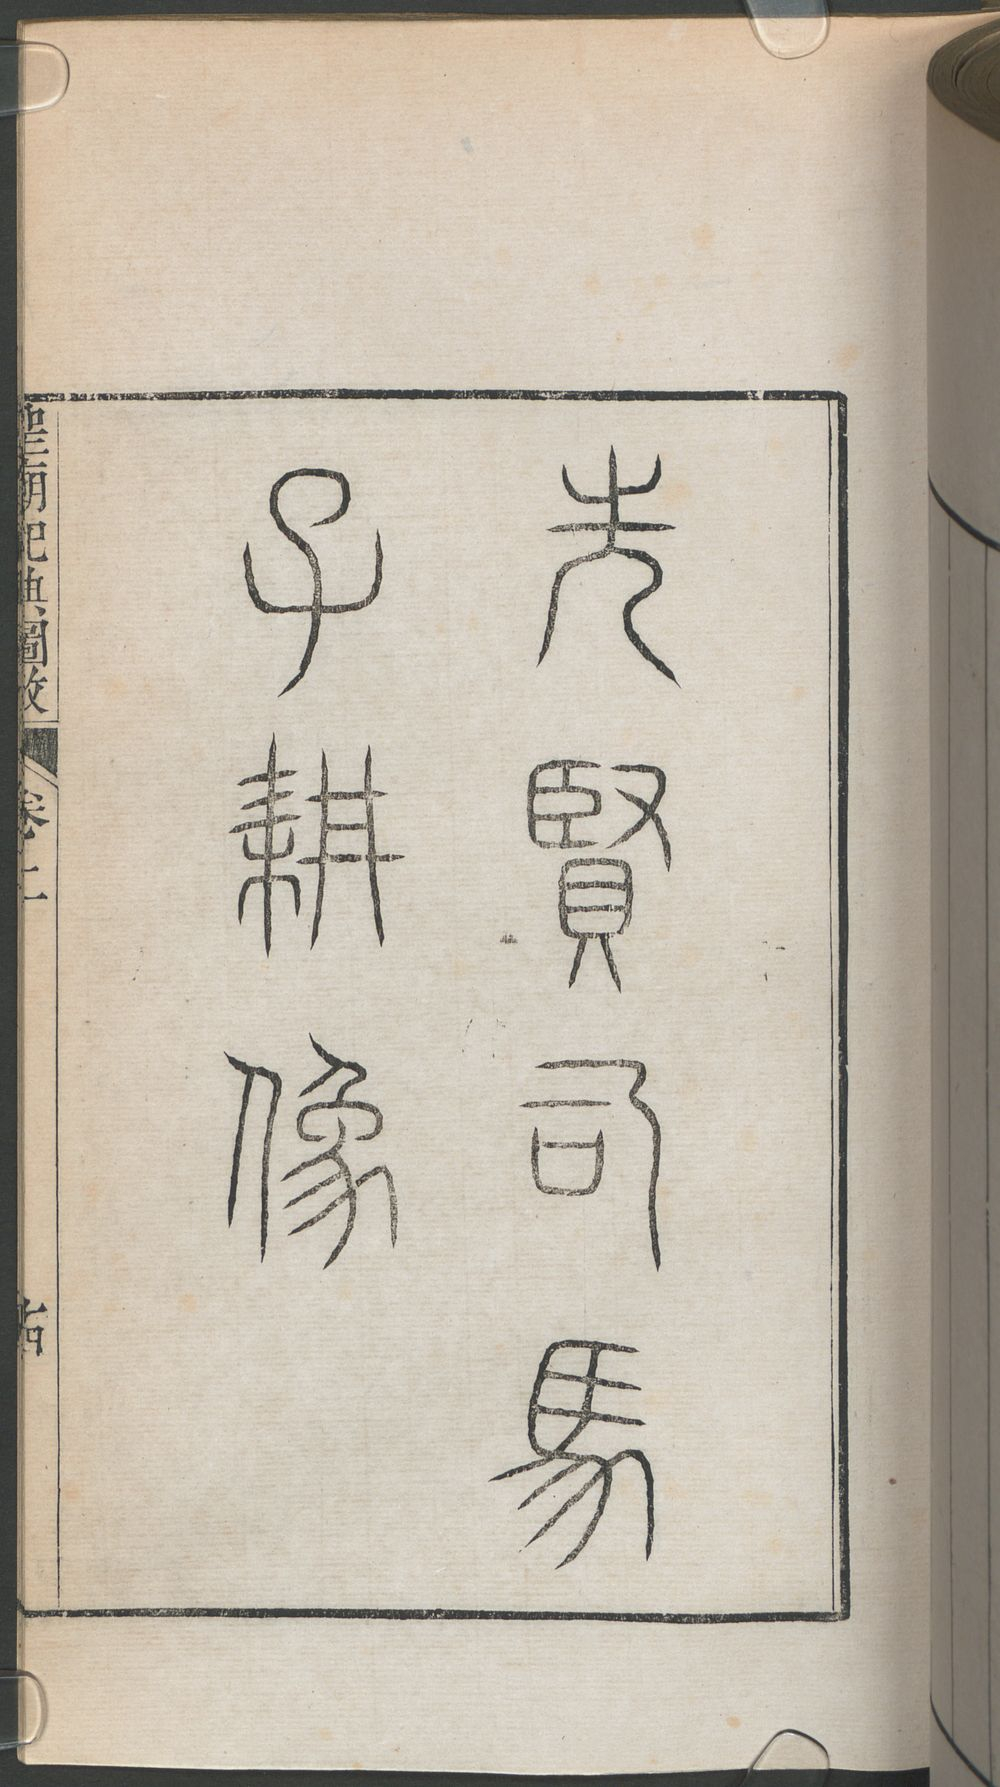 先賢司馬
子耕像
聖廟祀典圖攷
卷二